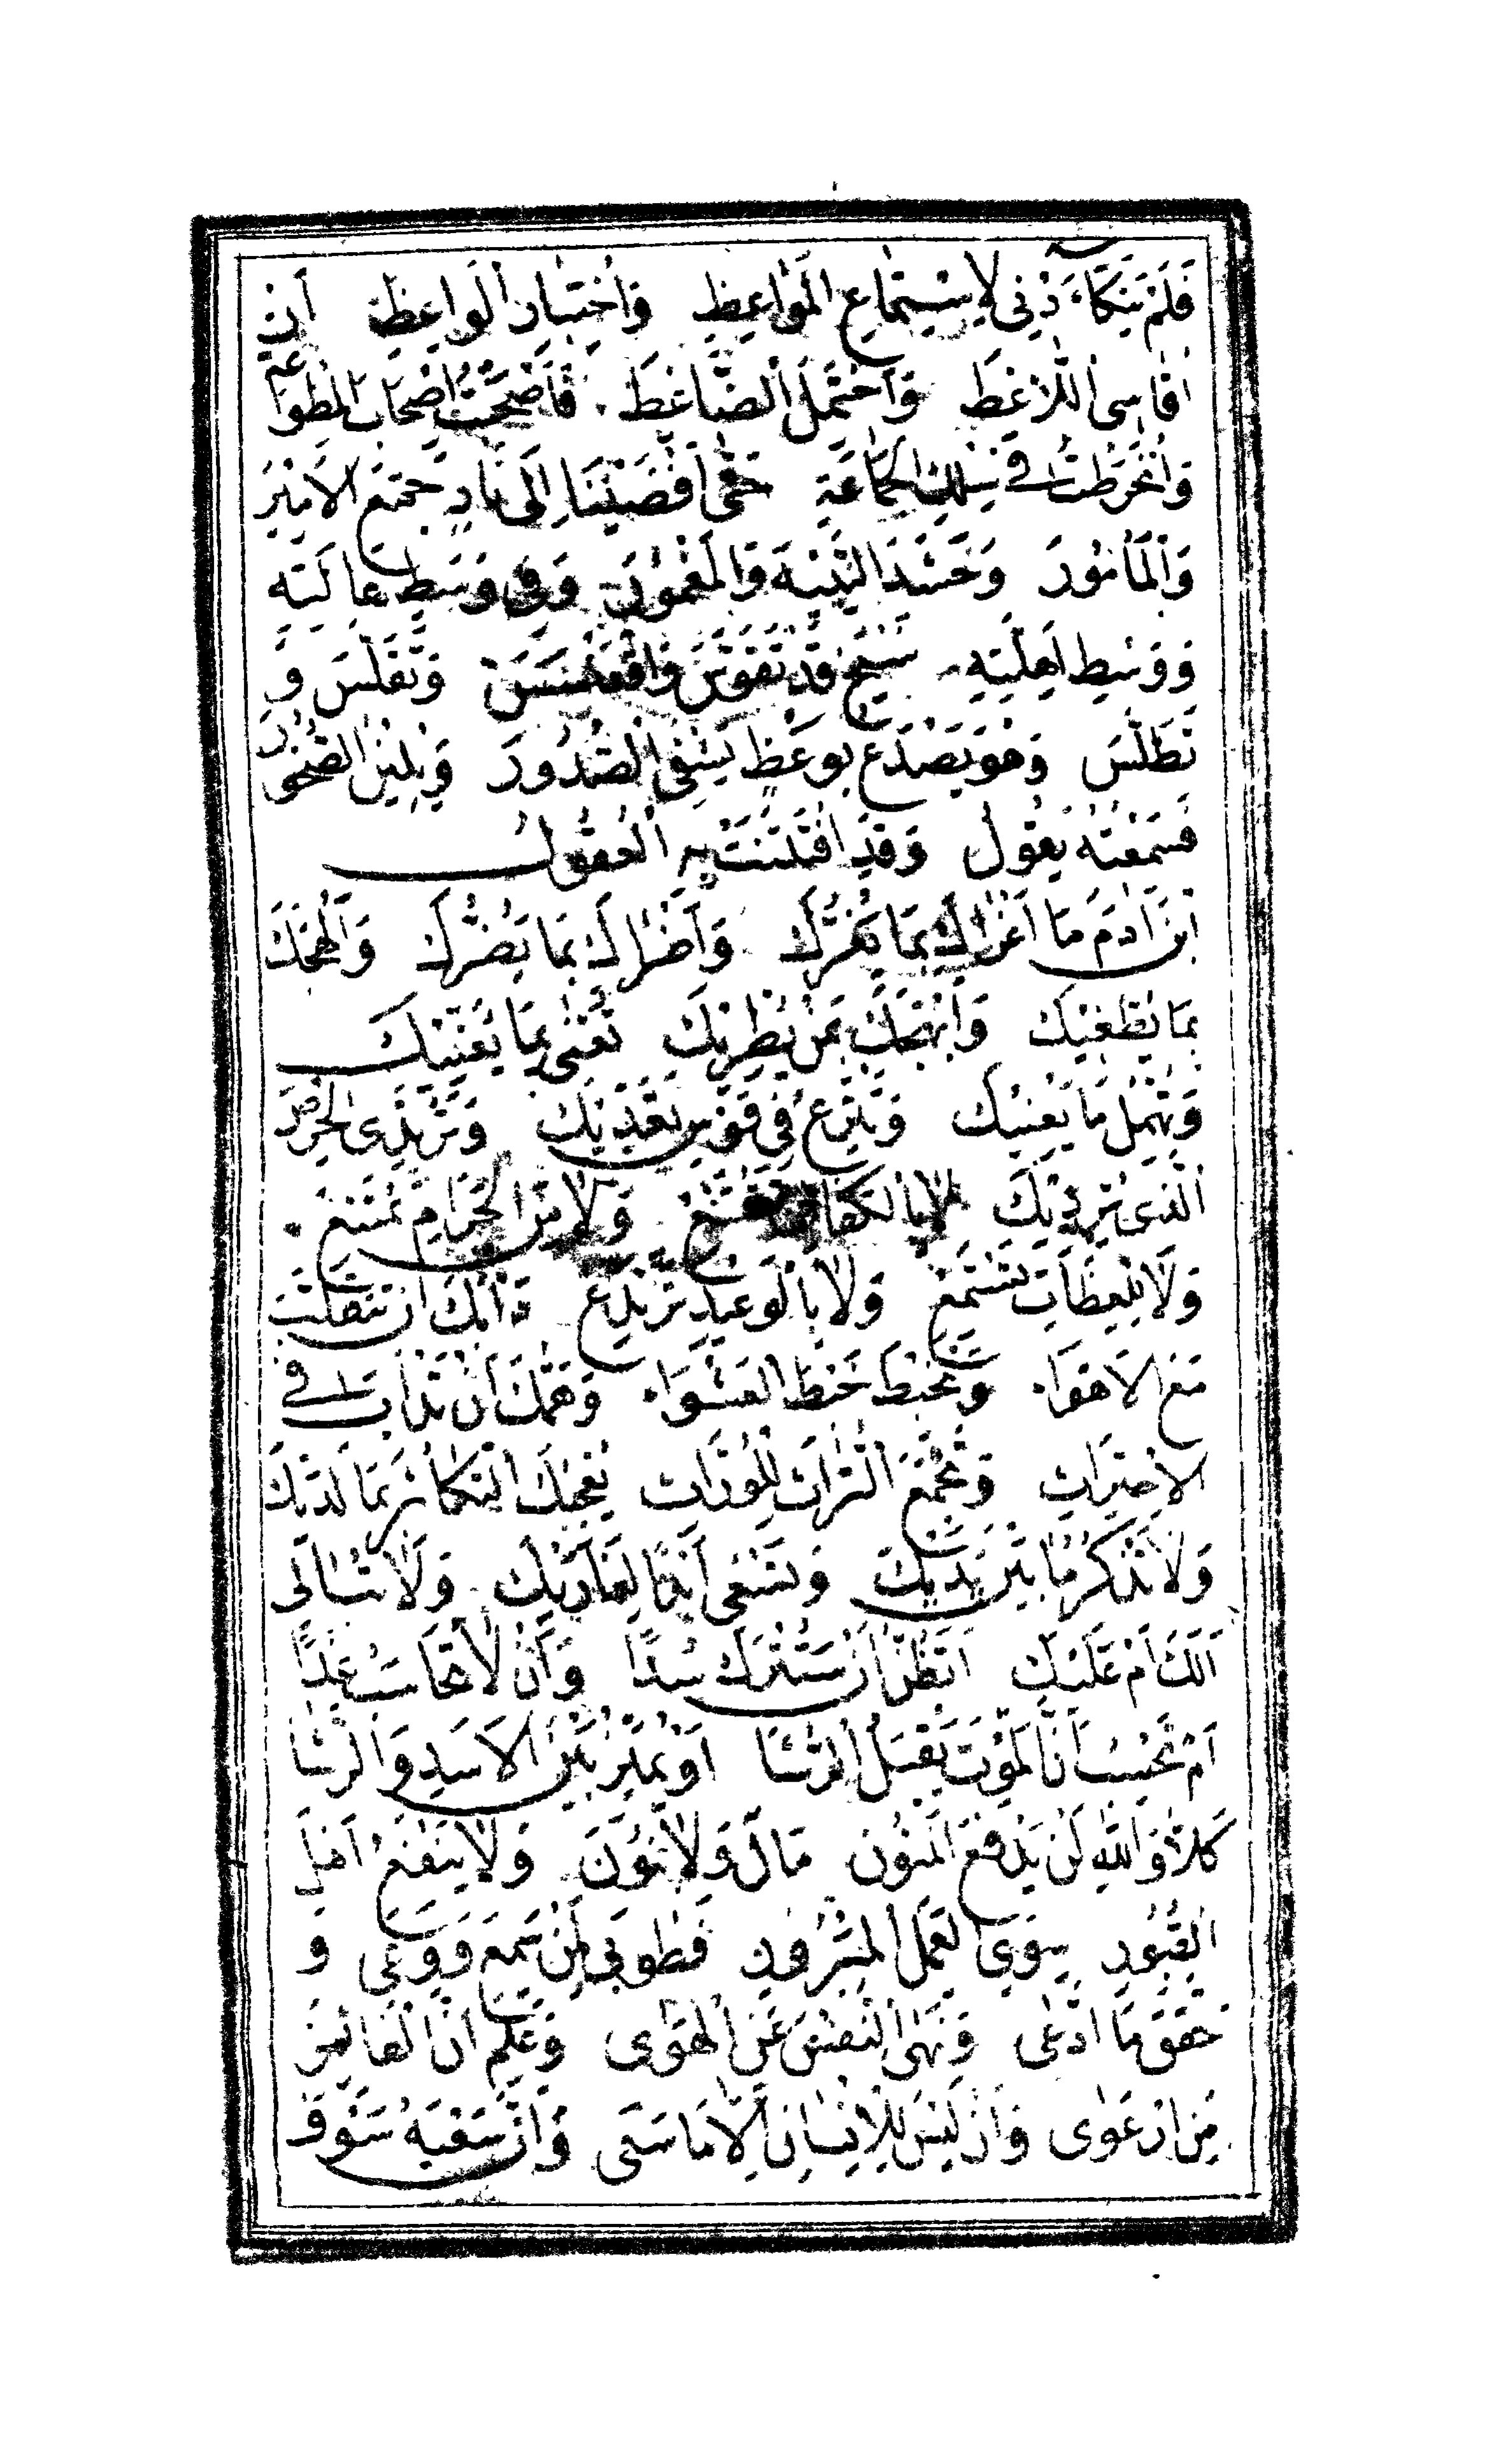 فَلَمْ يَتَكَاءَدْنِي لِاسْتِمَاعِ الْمَوَاعِظِ وَاخْتِبَارِ الْوَاعِظِ أَنْ
أُقَاسِيَ اللَّاغِطَ وَأَحْتَمِلَ الضَّاغِطَ فَأَصْحَبْتُ إِصْحَابَ الْمِطْوَاعَةِ
وَانْخَرَطْتُ فِي سِلْكِ الْجَمَاعَةِ حَتَّى أَفْضَيْنَا إِلَى نَادٍ جَمَعَ الْأَمِيرَ
وَالْمَأْمُورَ وَحَشَدَ النَّبِيهَ وَالْمَغْمُورَ وَفِي وَسَطِ هَالَتِهِ
وَوَسْطِ أَهِلَّتِهِ شَيْخٌ قَدْ تَقَوَّسَ وَاقْعَنْسَسَ وَتَقَلَّسَ وَ
تَطَلَّسَ وَهُوَ يَصْدَعُ بِوَعْظٍ يَشْفِي الصُّدُورَ وَيُلِينُ الصُّخُورَ
فَسَمِعْتُهُ يَقُولُ وَقَدِ افْتَتَنَتْ بِهِ الْعُقُولُ
ابْنَ آدَمَ مَا أَغْرَاكَ بِمَا يَغُرُّكَ وَأَضْرَاكَ بِمَا يَضُرُّكَ وَأَلْهَجَكَ
بِمَا يُطْغِيكَ وَأَبْهَجَكَ بِمَنْ يُطْرِيكَ تُعْنَى بِمَا يُعَنِّيكَ
وَتُهْمِلُ مَا يَعْنِيكَ وَتَنْزِعُ فِي قَوْسِ تَعَدِّيكَ وَتَرْتَدِي الْحِرْصَ
الَّذِي يُرْدِيكَ لَا بِالْكَفَافِ تَقْتَنِعُ وَلَا مِنَ الْحَرَامِ تَمْتَنِعُ
وَلَا لِلْعِظَاتِ تَسْتَمِعُ وَلَا بِالْوَعِيدِ تَرْتَدِعُ دَأْبُكَ أَنْ تَتَقَلَّبَ
مَعَ الْأَهْوَاءِ وَتَخْبِطَ خَبْطَ الْعَشْوَاءِ وَهَمُّكَ أَنْ تَدْأَبَ فِي
الِاحْتِرَاثِ وَتَجْمَعَ التُّرَاثَ لِلْوُرَّاثِ يُعْجِبُكَ التَّكَاثُرُ بِمَا لَدَيْكَ
وَلَا تَذْكُرُ مَا بَيْنَ يَدَيْكَ وَتَسْعَى أَبَدًا لِغَارَيْكَ وَلَا تُبَالِي
أَلَكَ أَمْ عَلَيْكَ أَتَظُنُّ أَنْ سَتُتْرَكُ سُدًا وَأَنْ لَا تُحَاسَبُ غَدًا
أَمْ تَحْسَبُ أَنَّ الْمَوْتَ يَقْبَلُ الرُّشَا أَوْ يُمَيِّزُ بَيْنَ الْأَسَدِ وَالرَّشَا
كَلَّا وَاللَّهِ لَنْ يَدْفَعَ الْمَنُونَ مَالٌ وَلَا بَنُونَ وَلَا يَنْفَعُ أَهْلَ
الْقُبُورِ سِوَى الْعَمَلِ الْمَبْرُورِ فَطُوبَى لِمَنْ سَمِعَ وَوَعَى وَ
حَقَّقَ مَا ادَّعَى وَنَهَى النَّفْسَ عَنِ الْهَوَى وَعَلِمَ أَنَّ الْفَائِزَ
مَنِ ارْعَوَى وَأَنْ لَيْسَ لِلْإِنْسَانِ إِلَّا مَا سَعَى وَأَنَّ سَعْيَهُ سَوْفَ